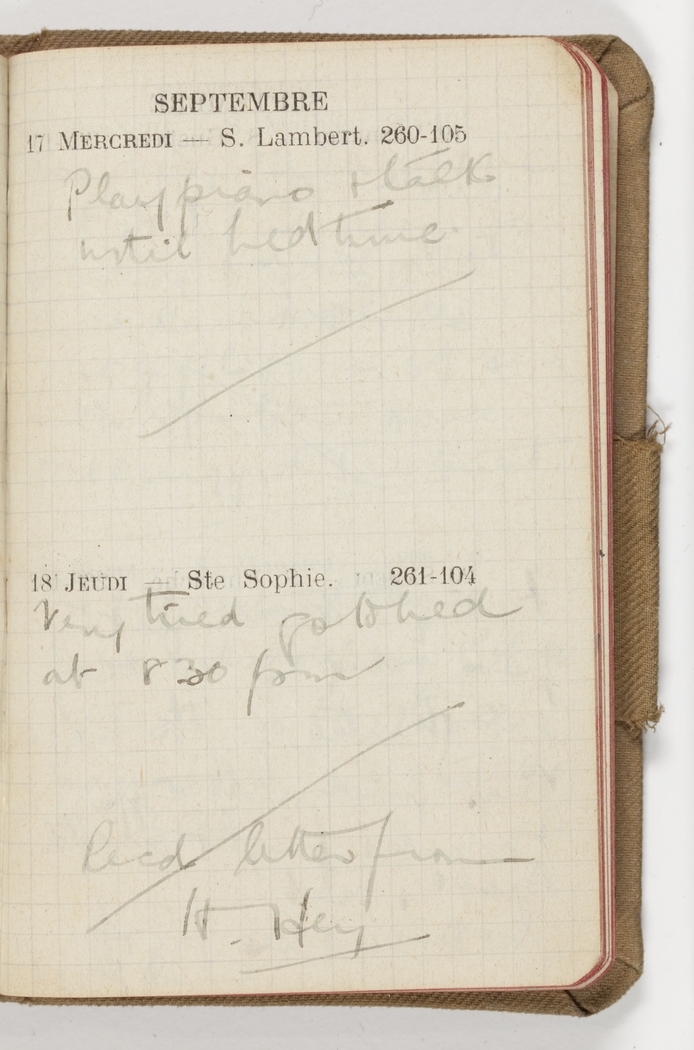 SEPTEMBRE
17 MERCREDI — S. Lambert. 260-105
Play piano & talk
until bedtime
18 JEUDI — Ste Sophie. 261-104
Very tired go to bed
at 8 30 pm
Recd letter from
H. Hey